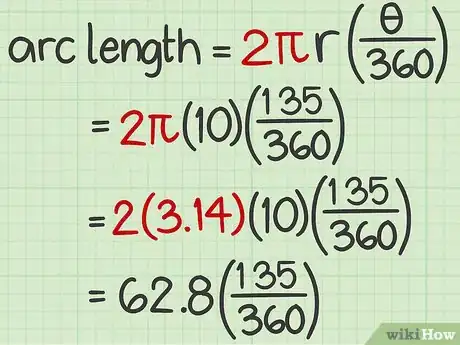 arc length = 2πr(θ/360)
= 2π(10)(135/360)
= 2(3.14)(10)(135/360)
= 62.8(135/360)
wikiHow